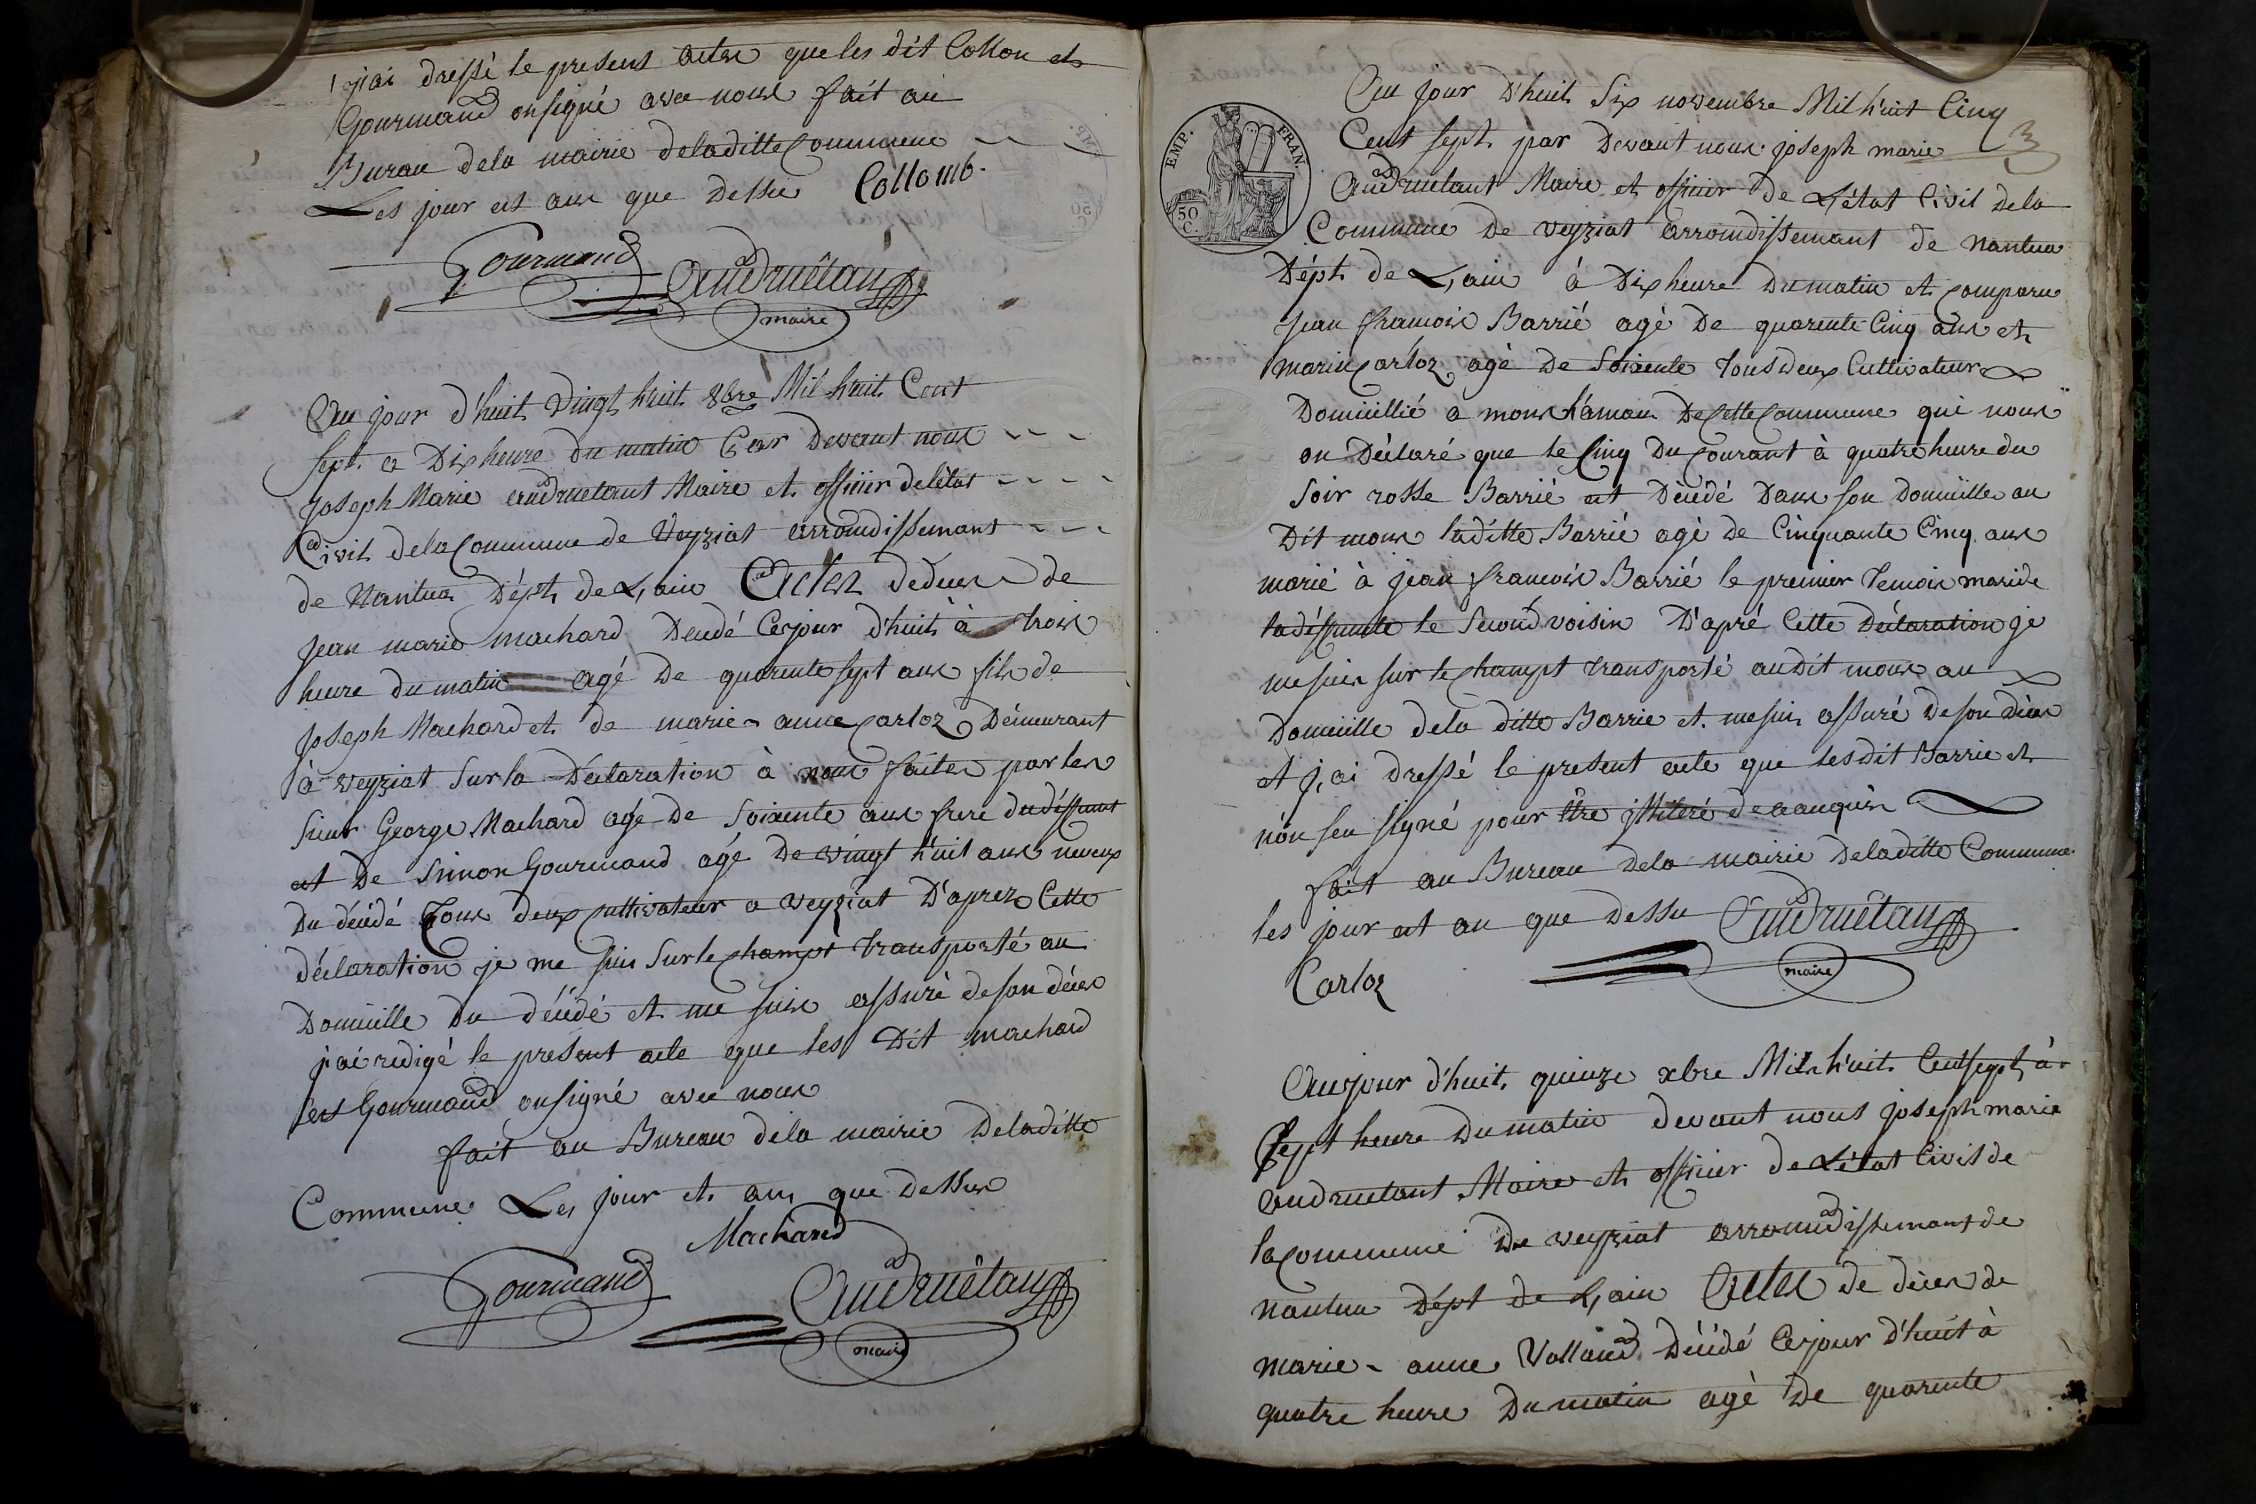 j'ai dressé le present actes que les dit Collon et
Gourmand onsigné avec nous fait au
Burau dela mairie deladitte Commune
Les jour et ans que dessu Collomb.
Gourmand Audruêtan
maire
Au jour d'huit vingt huit 8bre Mil huit Cent
sept a Dix heure du matin Par Devant nous
Joseph Marie audruetant Maire et offiier delétat
Civil dela Commune de Veyziat arrondissemant
de Nantua Dépt de L,ain Actes dedeces de
Jean marie machard Decedé Cejour d'huit à trois
heure du matin agé De quarente sept ans fils de
Joseph Machard et de marie-anne Carloz Démeurant
à veyziat Sur la Déclaration à nous faites par les
sieur George Machard agé De soixente ans frere dudéffunt
et De Simon Gourmand agé De vingt h'uit ans neveux
Du décédé Tous deux Cultivateur a veyziat D'aprez Cette
déclaration je me suis Sur le Champt transporté au
Domicille Du décédé et me suis assuré deson déces
j'ai redigé le present acte que les Dit machard
et Gourmand onsigné avec nous
fait au Bureau déla mairie Deladitte
Commune Les jour et ans que dessus
Machard
Gourmand Audruêtan
maire
EMP. FRAN.
50
C.
3
Au jour D'huit Six novembre Mil h'uit Cinq
Cent sept par Devant nous joseph marie
Audruetant Maire et offiier de L'état Civil dela
Commune De veyziat arrondissemant de Nantua
Dépt de L,ain à Dix heure Du matin et Comparu
Jean francois Barrié agé De quarente Cinq ans et
marin Carloz agé De Soixente Tous deux Cultivateur
Domicillié a mons h'amau De Cette Commune qui nous
on Déclaré que le Cinq Du Courant à quatre heure du
soir rosse Barrié est Décédé Dans son Domicille au
Dit mons laditte Barrié agé de Cinquante Cinq ans
marié à jean francois Barrié le premier temoin maride
ladéffunte le Second voisin D'apré Cette Déclaration je
mesuis sur le Champt transporté audit mons au
Domicille dela ditte Barrie et mesui assuré Deson déces
et j,ai dressé le present acte que lesdit Barrie et
n'on seu signé pour être jlliteré de
fait au Bureau dela mairie Deladitte Commune
les jour et an que dessu Audruêtan
Carloz maire
Aujour d'huit quinze xbre Mil h'uit Centsept à
Sept heure Dumatin devant nous joseph marie
audruetant Maire et offiier de L'état Civil de
la Commune De veyziat arrondissemant de
nantua Dépt de L,ain Actes de déces de
marie-anne Volland Décédé Cejour D'huit à
quatre heure Dumatin agé De quarente